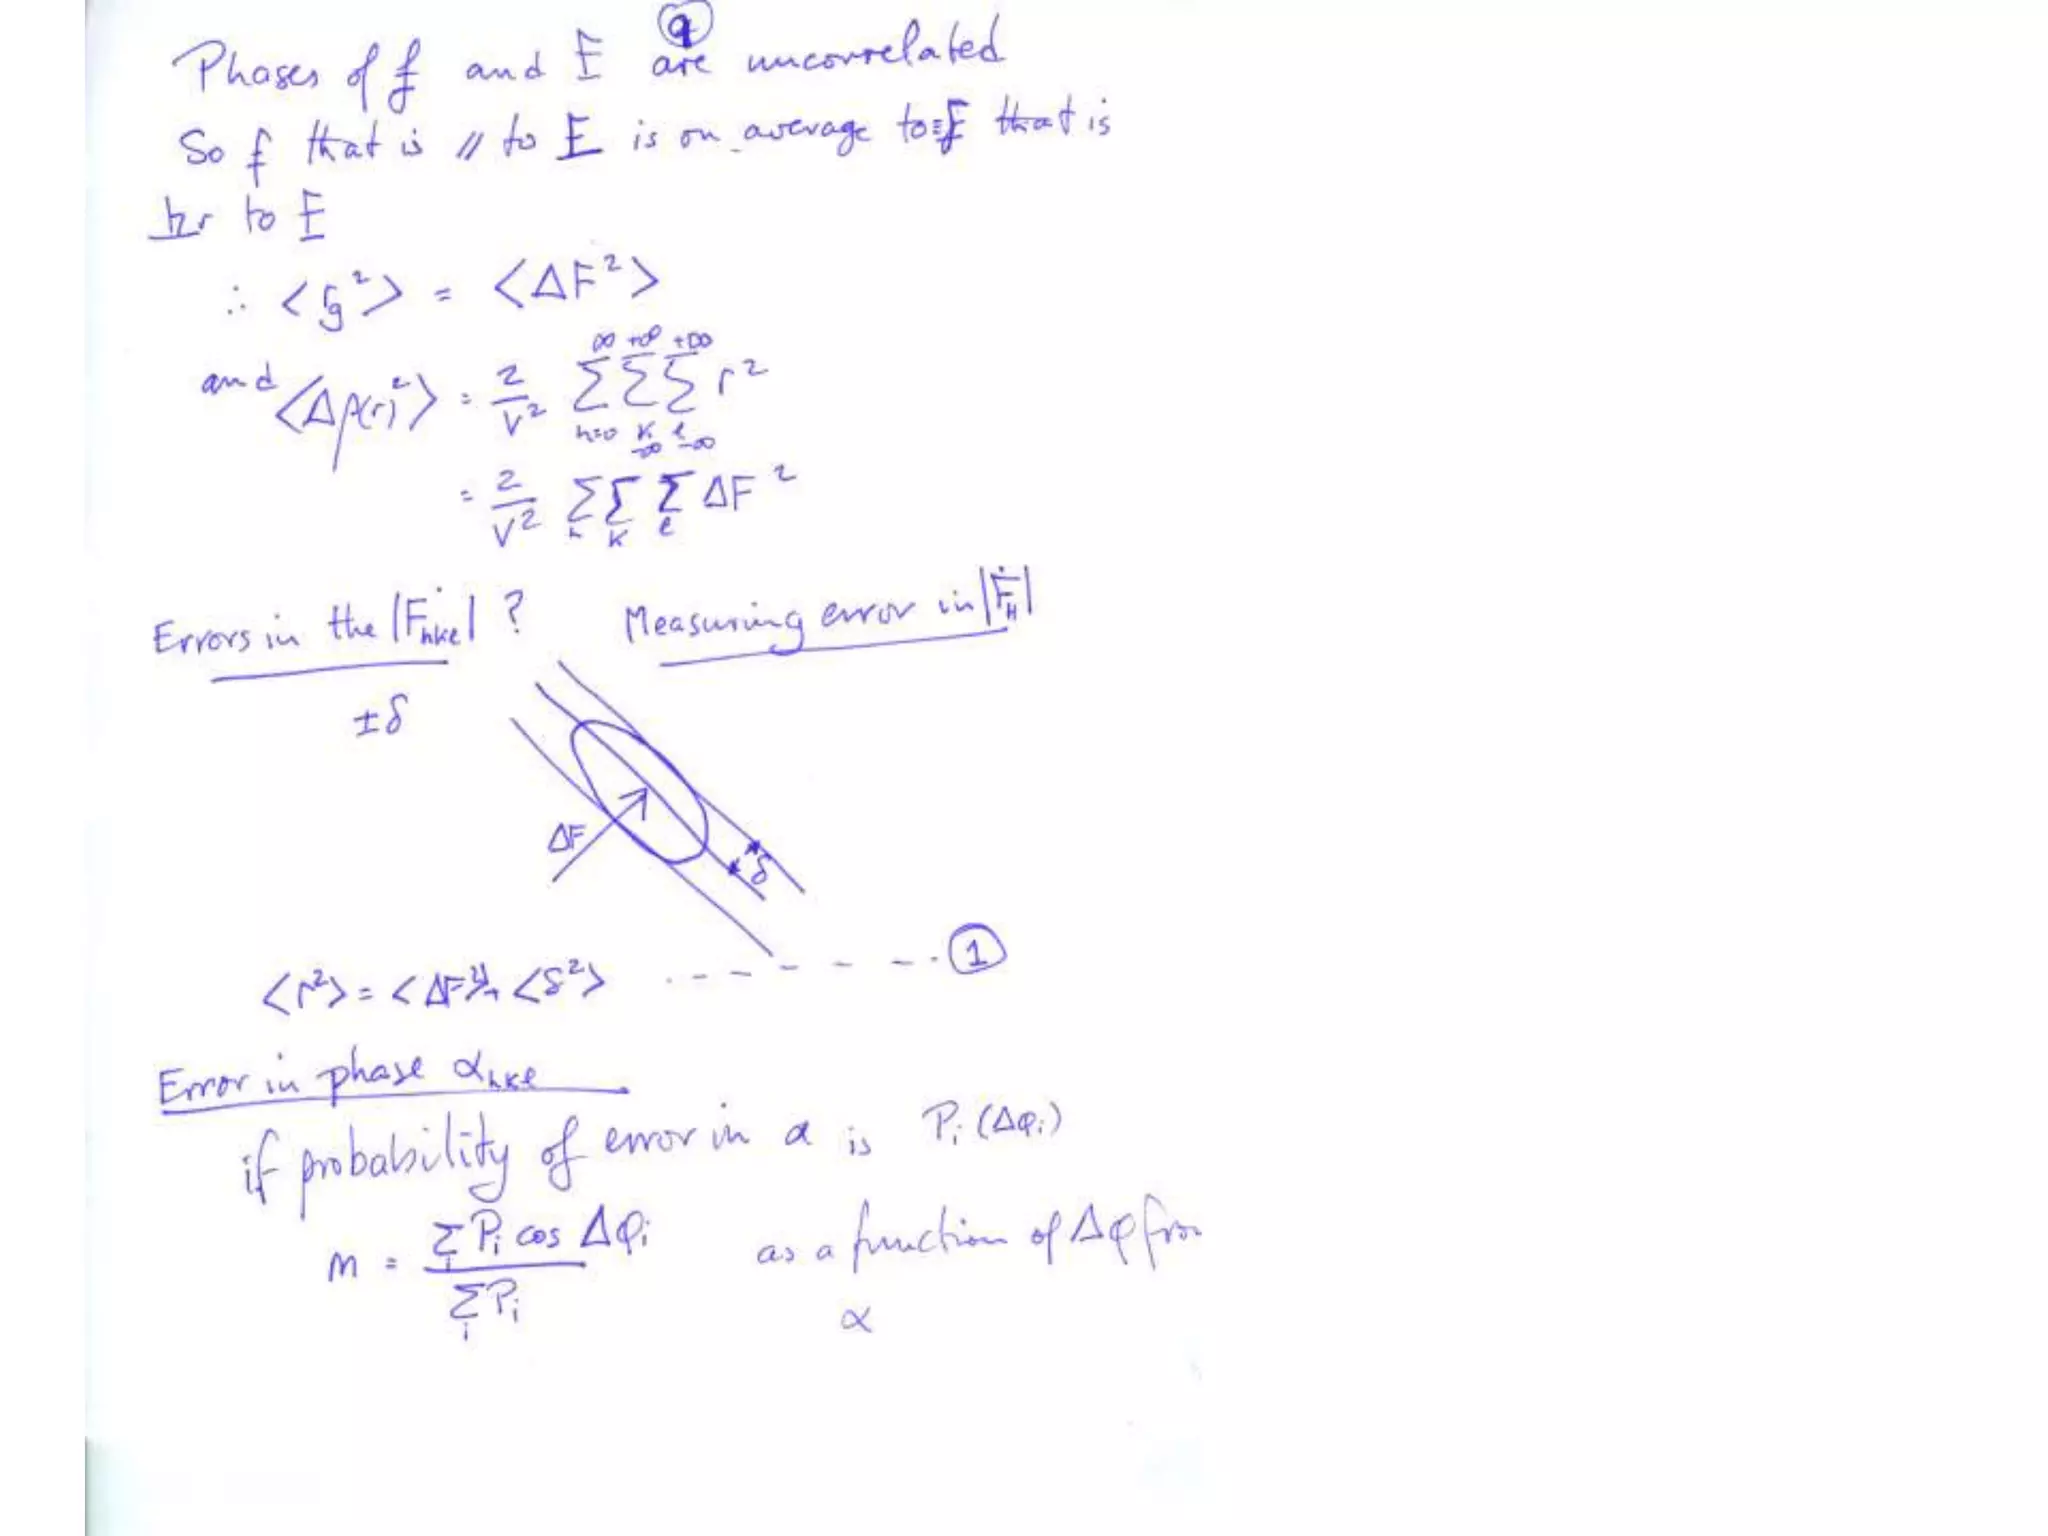 9
Phases of f and F are uncorrelated
So f that is // to F is on average to = f that is
to F
∴ < g² > = < ΔF² >
and < Δρ(r)² > = 2/V² ∞ +∞ +∞ Σ Σ Σ r²
h=0 k -∞ l -∞
= 2/V² Σh Σk Σl ΔF²
Errors in the |Fhkl| ? Measuring error in |FH|
± δ
ΔF
δ
< r² > = < ΔF² > + < δ² > - - - - - - 1
Error in phase αhkl
if probability of error in α is Pi (Δφi)
m = Σi Pi cos Δφi / Σi Pi as a function of Δφ from
α